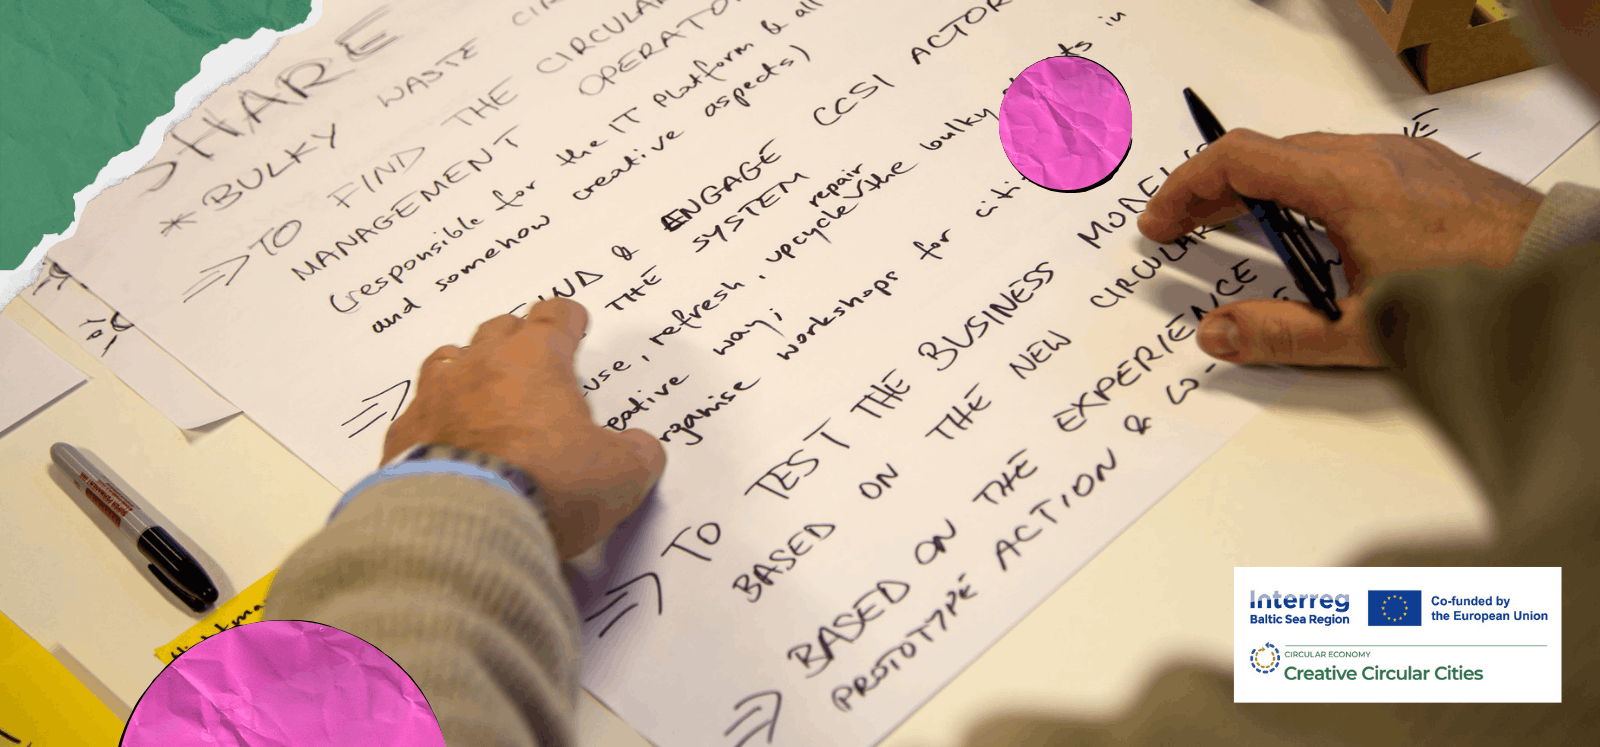 SHARE
* BULKY WASTE
⇒ TO FIND THE CIRCULAR
MANAGEMENT OPERATO
(responsible for the IT Platform & all
and somehow creative aspects)
⇒ FIND & ENGAGE CCSI ACTOR
THE SYSTEM
repair
use, refresh, upcycle the bulky in
eative way;
rganise workshops for citi
⇒ TO TEST THE BUSINESS MODEL
BASED ON THE NEW CIRCULAR
⇒ BASED ON THE EXPERIENCE
PROTOTYPE ACTION & co-
Interreg
Baltic Sea Region
Co-funded by
the European Union
CIRCULAR ECONOMY
Creative Circular Cities